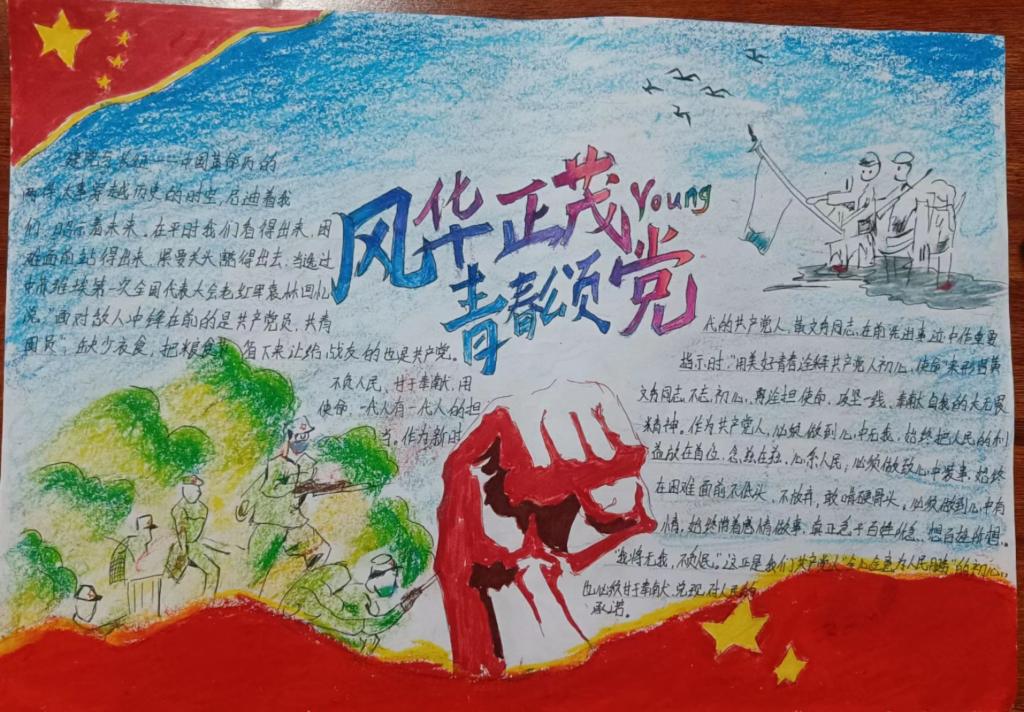 风华正茂
Young
青春颂党
建党与长征——中国革命历的
两件大事穿越历史的时空,启迪着我
们,昭示着未来。在平时我们看得出来,困
难面前站得出来,
第一次全国代表大会老红军袁林回忆
说,"面对敌人冲锋在前的是共产党员、共青
团员";缺少衣食,把粮食留下来让给战友的也是共产党。
不负人民、甘于奉献、用
使命,一代人有一代人的担
当。作为新时
代的共产党人,黄文秀同志在前先进事迹中作重要
指示时:"用美好青春诠释共产党人初心、使命"
文秀同志不忘初心,勇于担使命,攻坚一线、奉献自我的大无畏
精神。作为共产党人,必须做到心中无我,始终把人民的利
益放在首位,念兹在兹,心系人民;必须做到心中爱事,始终
在困难面前不低头、不放弃,敢啃硬骨头。必须做到心中有
情,始终带着感情做事,真正急千百姓所急、想百姓所想。
"我将无我,不负人民。"这正是我们共产党人
也必须甘于奉献、兑现对人民的
承诺。